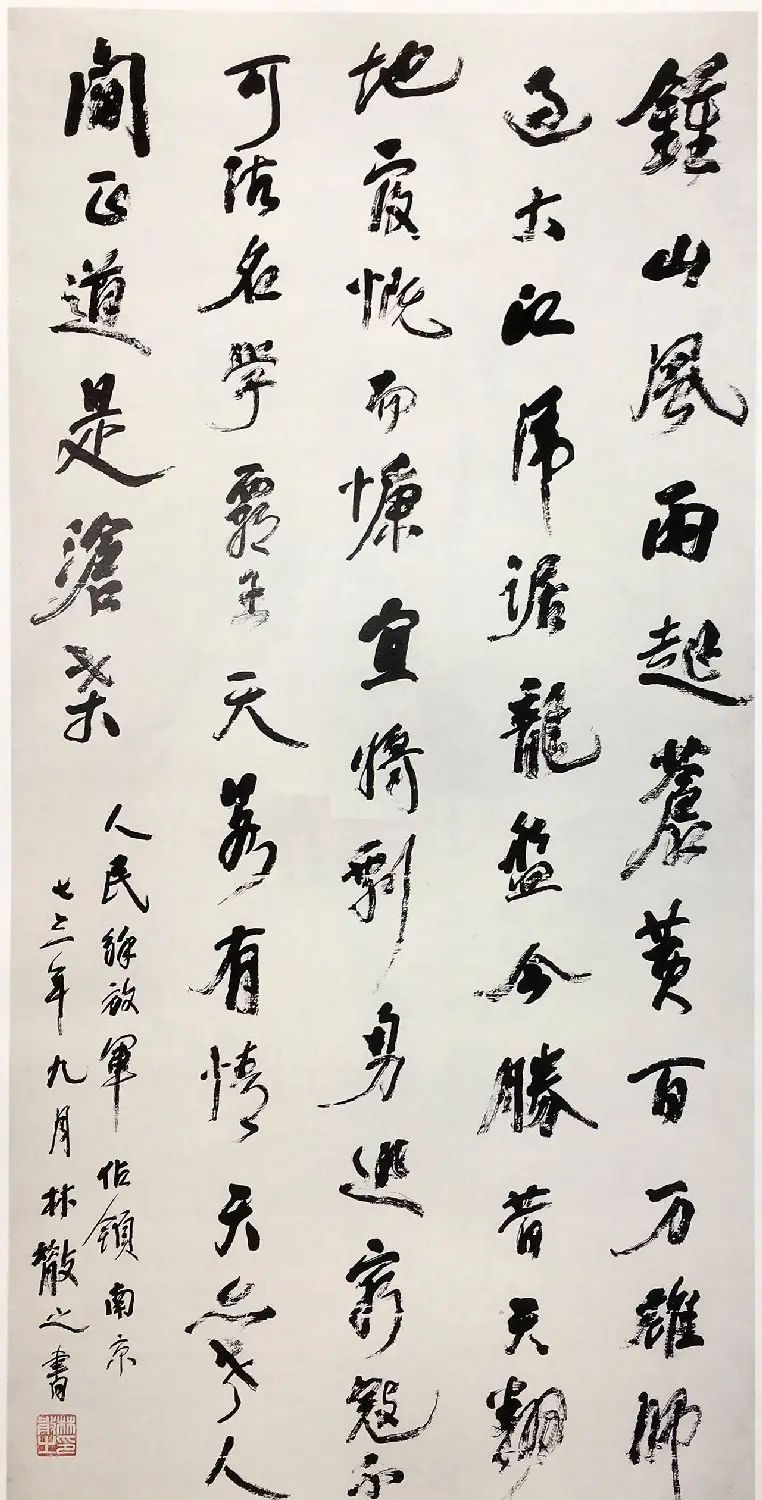 鍾山風雨起蒼黄百万雄師
过大江虎踞龍盤今勝昔天翻
地覆慨而慷宜將剩勇追窮寇不
可沽名學霸王天若有情天亦老人
間正道是滄桑
人民解放軍佔領南京
七三年九月林散之書